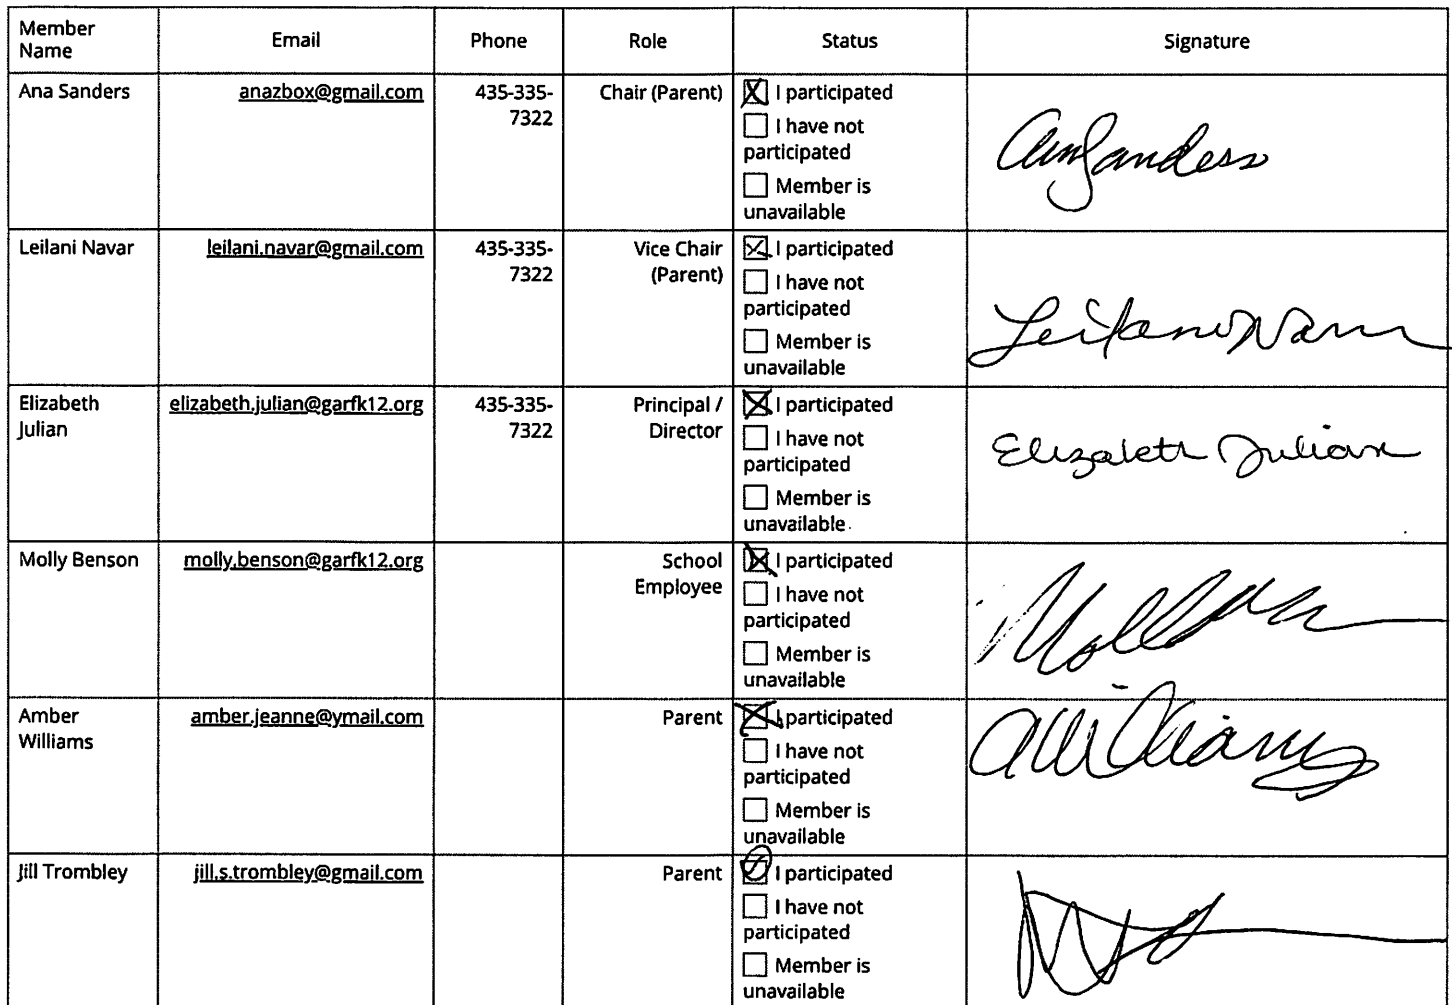 Member Name Email Phone Role Status Signature
Ana Sanders anazbox@gmail.com 435-335- Chair (Parent) I participated
7322 I have not
participated
Member is
unavailable
AnaSanders
Leilani Navar leilani.navar@gmail.com 435-335- Vice Chair I participated
7322 (Parent) I have not
participated
Member is
unavailable
Leilani Navar
Elizabeth elizabeth.julian@garfk12.org 435-335- Principal / I participated
Julian 7322 Director I have not
participated
Member is
unavailable
Elizabeth Julian
Molly Benson molly.benson@garfk12.org School I participated
Employee I have not
participated
Member is
unavailable
Amber amber.jeanne@ymail.com Parent I participated
Williams I have not
participated
Member is
unavailable
AWilliams
Jill Trombley jill.s.trombley@gmail.com Parent I participated
I have not
participated
Member is
unavailable